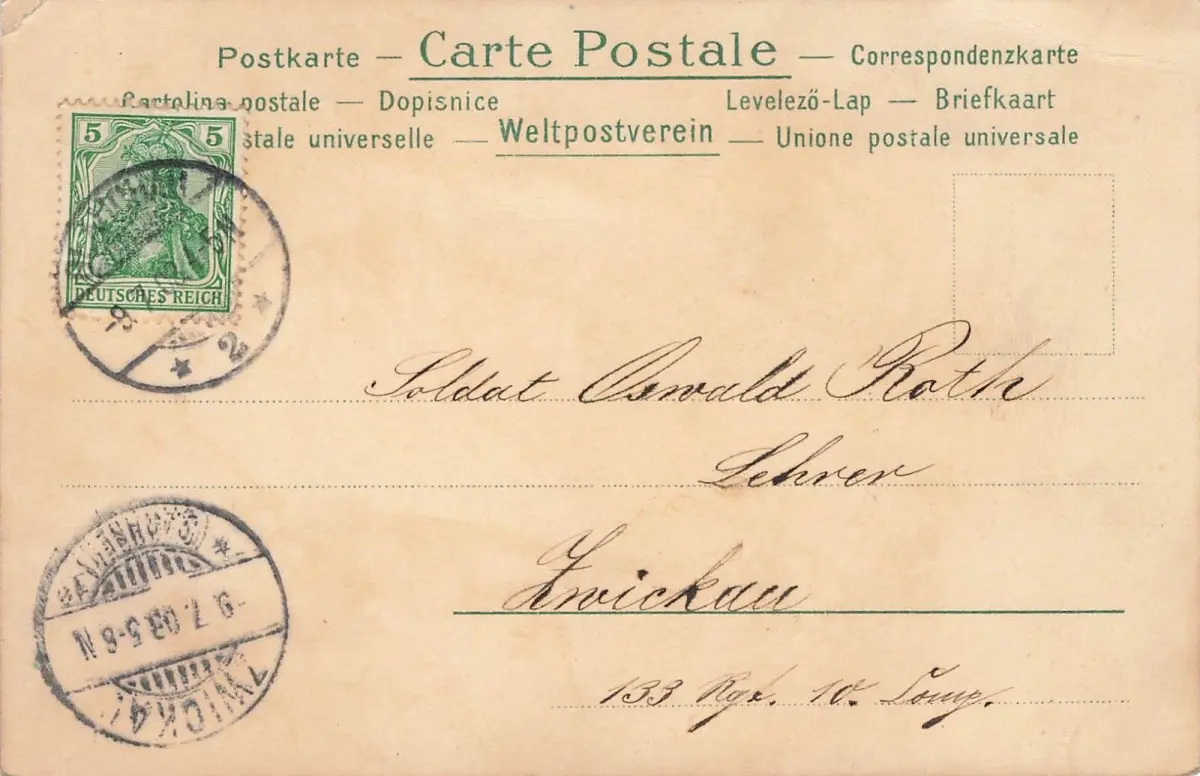 Postkarte — Carte Postale — Correspondenzkarte
Cartolina postale — Dopisnice Levelező-Lap — Briefkaart
stale universelle — Weltpostverein — Unione postale universale
5 5
DEUTSCHES REICH
-9.7.03. 4-5N
* 2 *
Soldat Oswald Roth
Lehrer
Zwickau
133 Rgt. 10. Comp.
(SACHSEN) *
-9.7.03.5-6 N
ZWICKAU